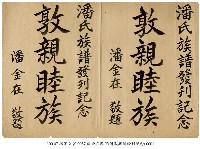 潘氏族譜發刊記念
敦親睦族
潘金在 敬題
潘氏族譜發刊記念
敦親睦族
潘金在 敬題